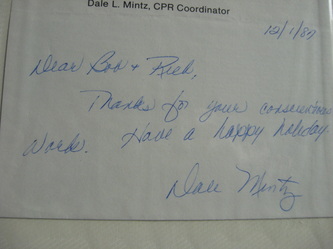 Dale L. Mintz, CPR Coordinator
12/1/87
Dear Bob + Rich,
Thanks for your conscientious
work. Have a happy holiday.
Dale Mintz